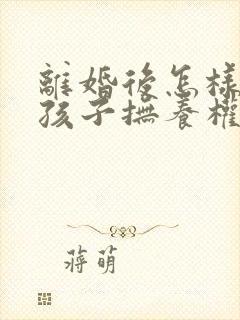 離婚後怎樣
孩子撫養權
蔣萌